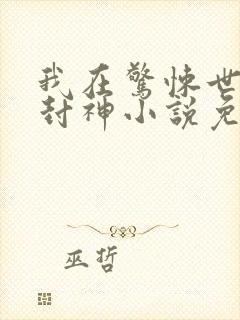 我在驚悚世
封神小說免
巫哲